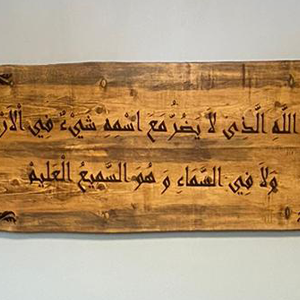 اللَّهِ الَّذِي لَا يَضُرُّ مَعَ اسْمِهِ شَيْءٌ فِي
وَلَا فِي السَّمَاءِ وَ هُوَ السَّمِيعُ الْعَلِيمُ